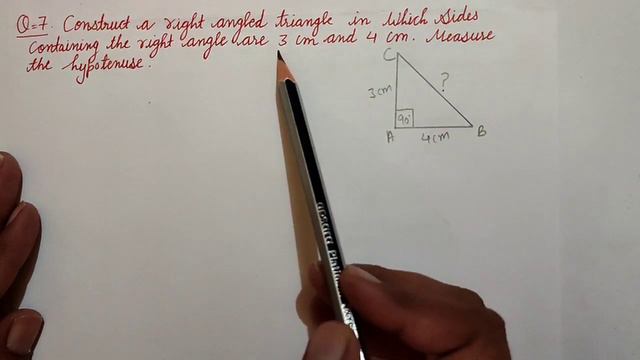 Q=7. Construct a right angled triangle in which sides
containing the right angle are 3 cm and 4 cm. Measure
the hypotenuse.
C
3cm
?
90°
A
4cm
B
apsara Platin